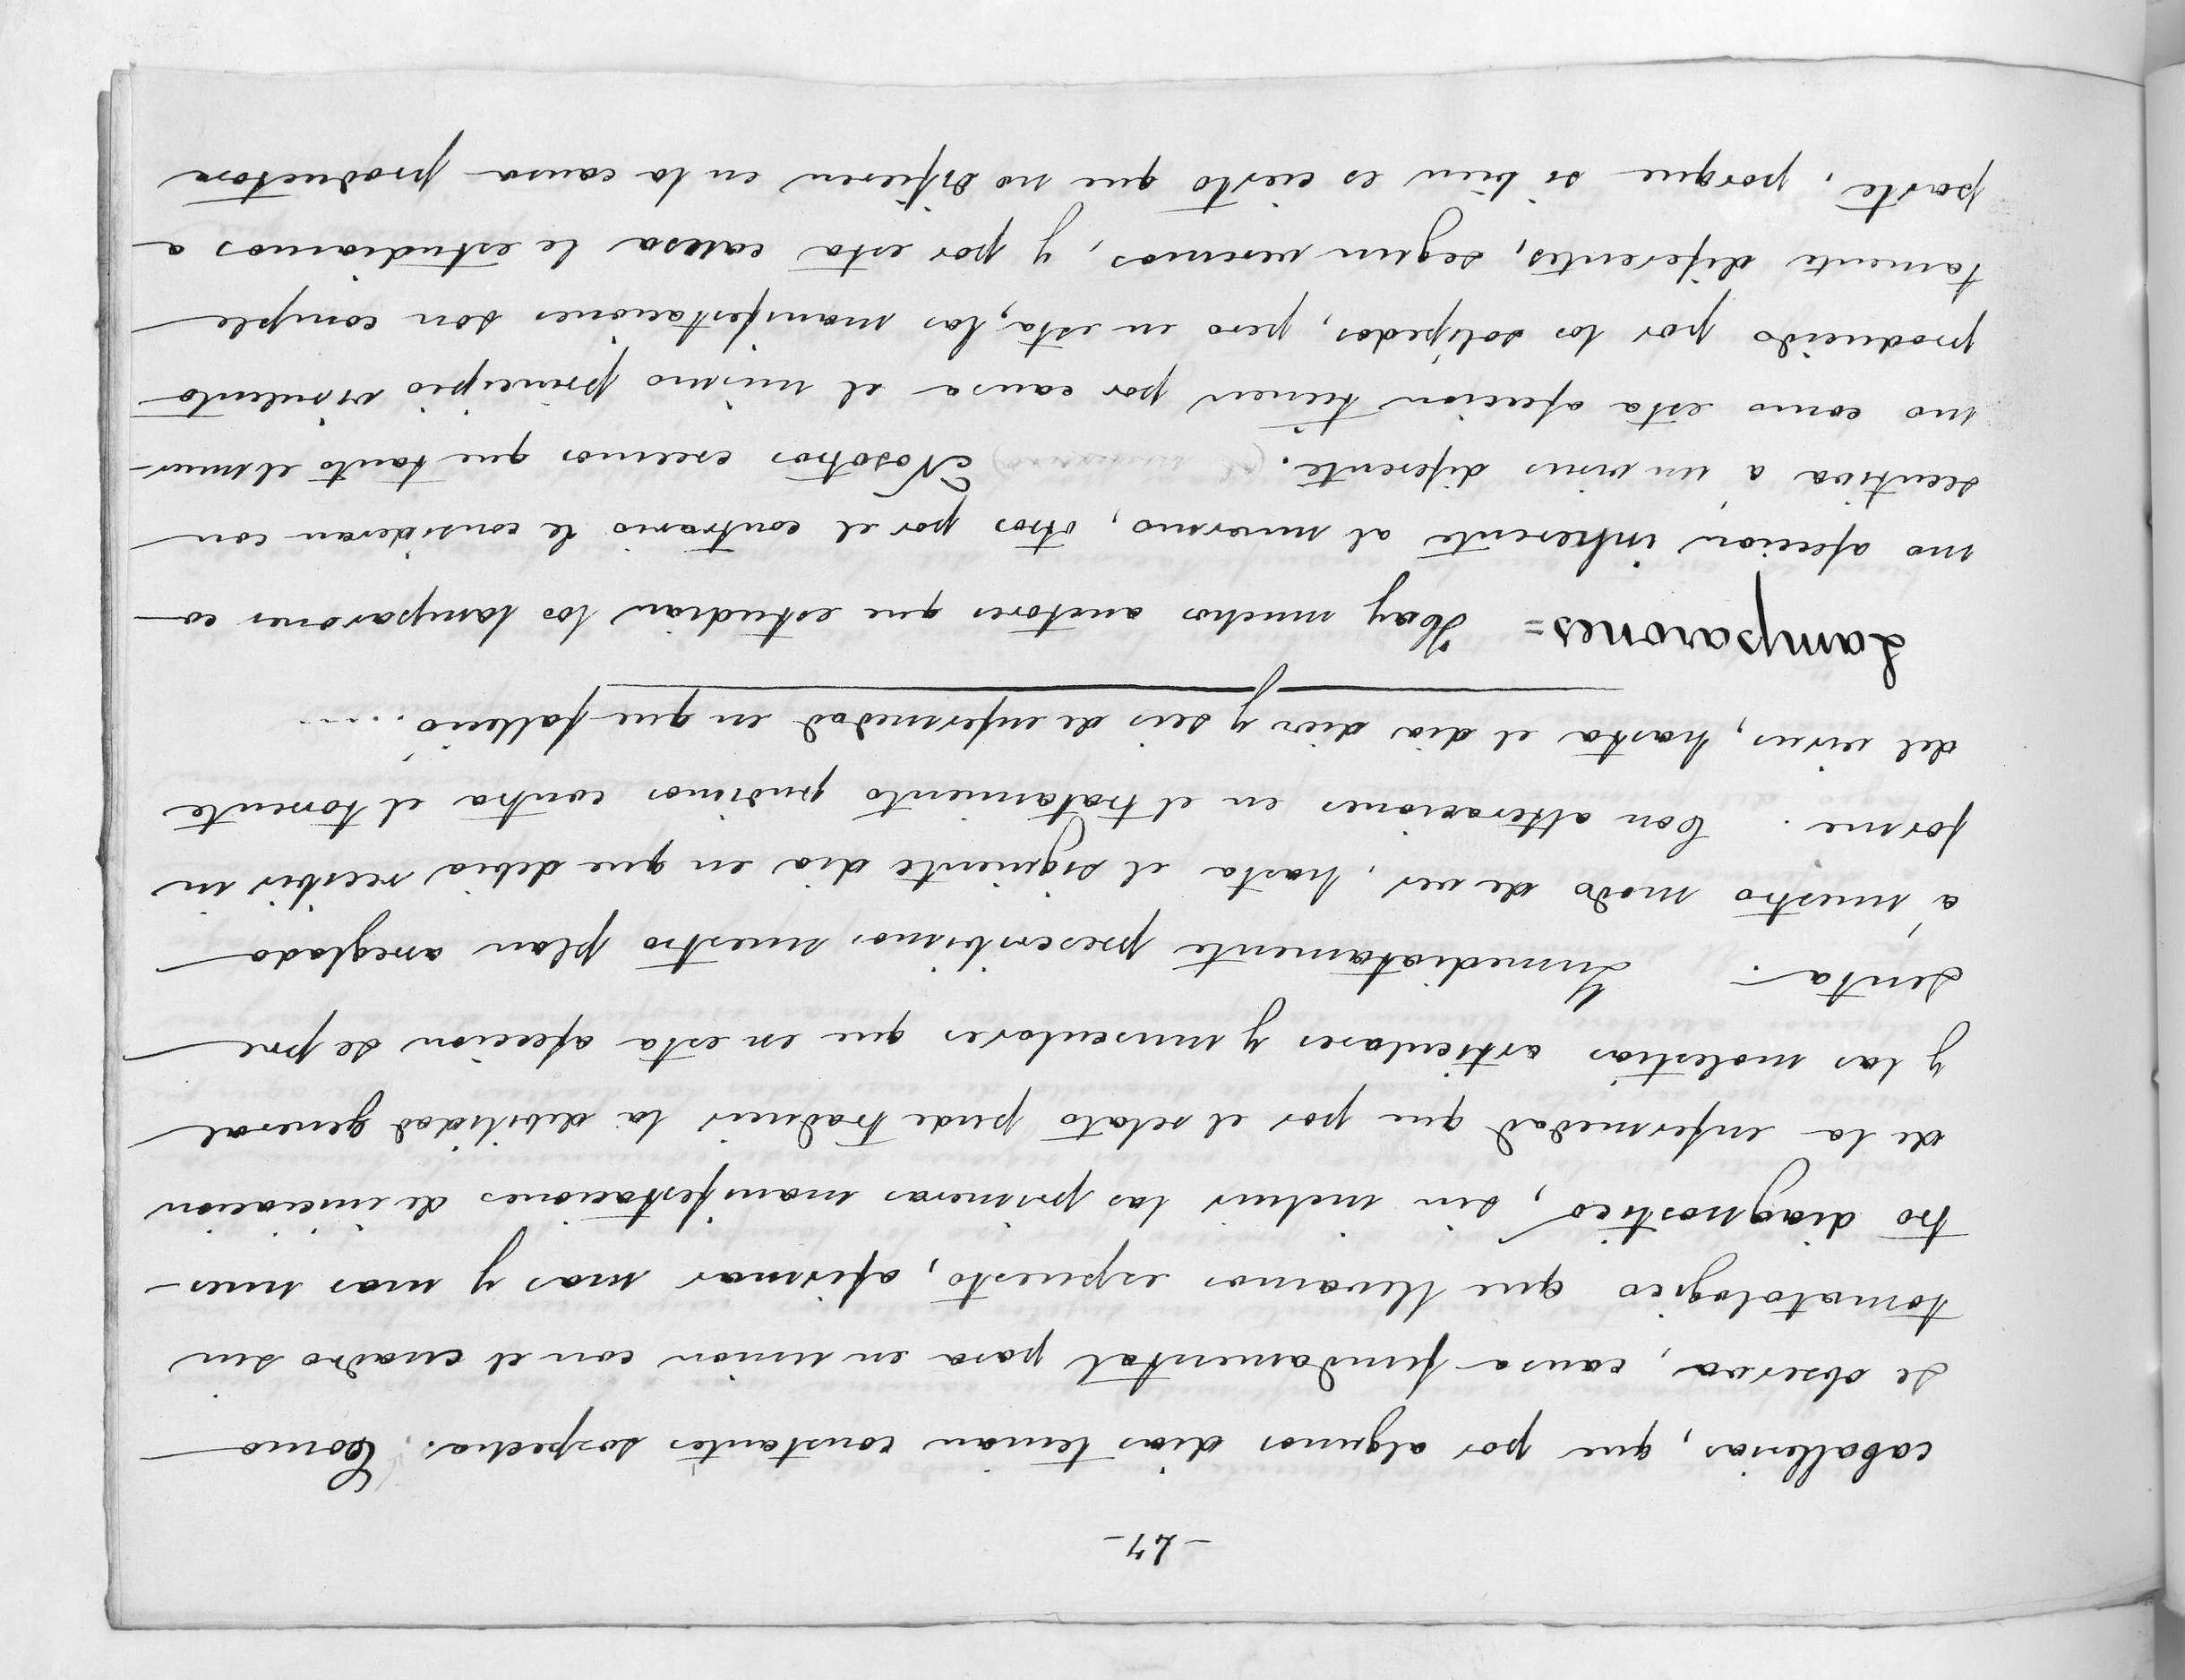 -27-
caballerias, que por algunos dias tenian constantes sospecha. Como
se observa, causa fundamental para en union con el cuadro sin
tomatologico que llevamos espuesto, afirmar mas y mas nues-
tro diagnostico, sin incluir las primeras manifestaciones de iniciacion
de la enfermedad que por el relato pude traducir la debilidad general
y las molestias articulares y musculares que en esta afeccion se pre
senta. Inmediatamente prescribimos nuestro plan arreglado
á nuestro modo de ver, hasta el siguiente dia en que debia recibir in
forme. Con alteraciones en el tratamiento pudimos contra el torrente
del virus, hasta el dia diez y seis de enfermedad en que falleció....
Lamparones= Hay muchos auctores que estudian los lamparones co
mo afeccion inherente al muermo, otros por el contrario le consideran con
secutiva á un virus diferente. Nosotros creemos que tanto el muer-
mo como esta afeccion tienen por causa el mismo principio virulento
producido por los solipedos, pero en esta, las manifestaciones son comple
tamente diferentes, segun veremos, y por esta causa le estudiamos a
parte, porque si bien es cierto que no difieren en la causa productora